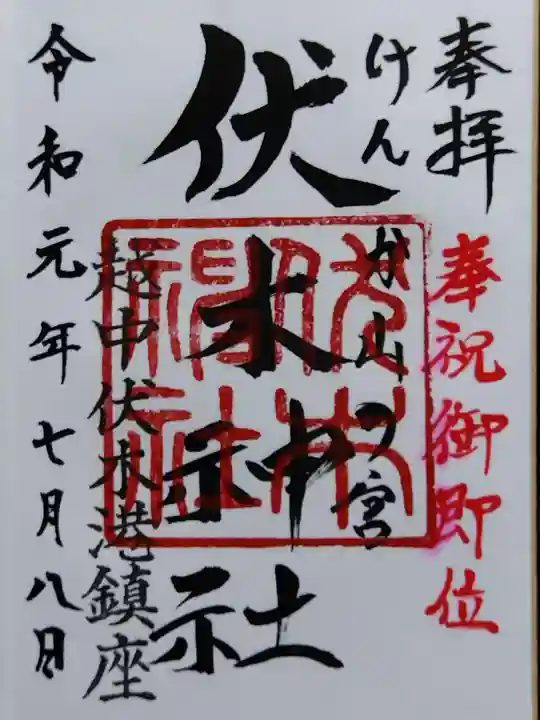 奉拝
奉祝御即位
けんか山の宮
伏木神社
越中伏木港鎮座
令和元年七月八日
伏木神社